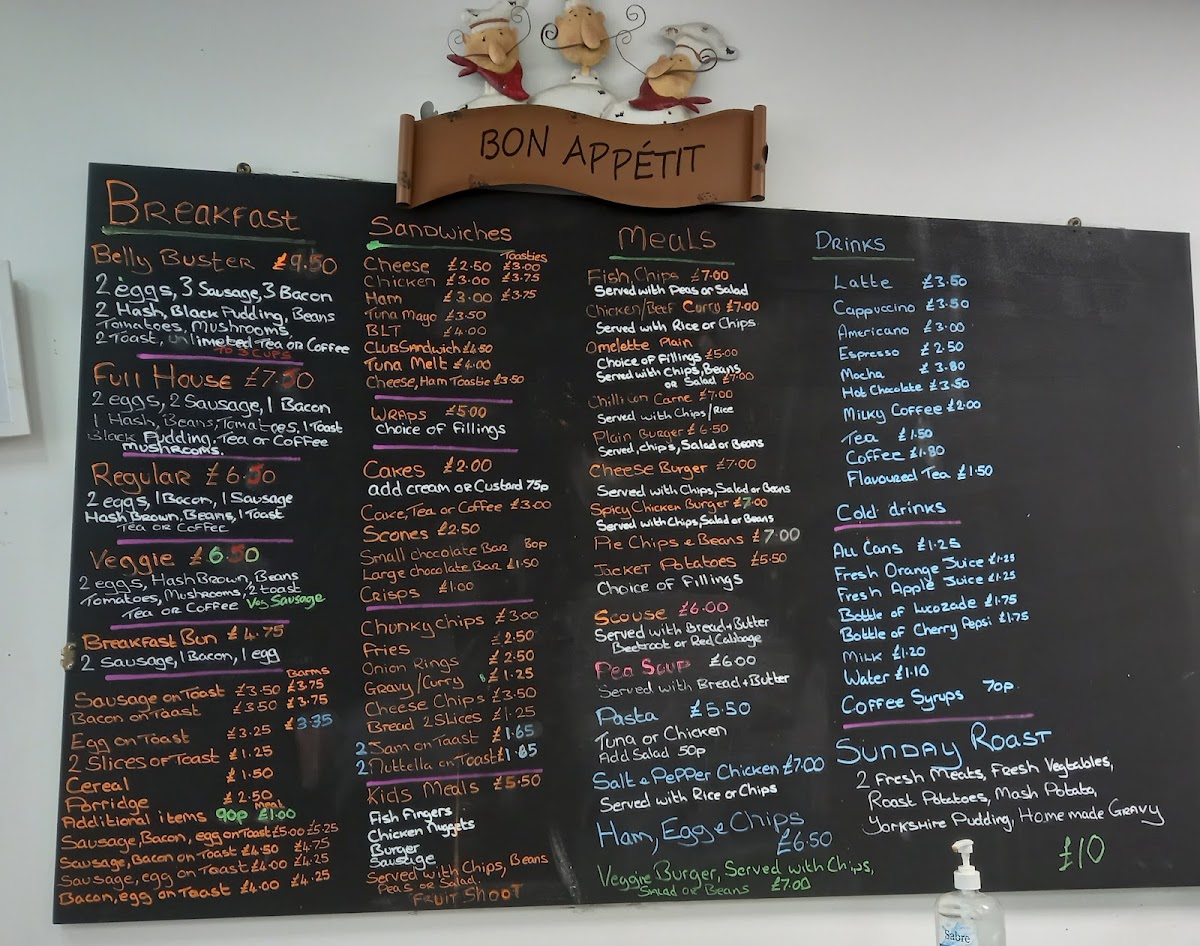 BON APPÉTIT
BREAKFAST
Belly Buster £9.50
2 eggs, 3 Sausage, 3 Bacon
2 Hash, Black Pudding, Beans
Tomatoes, Mushrooms,
2 Toast, Unlimeted Tea or Coffee
TO 3 CUPS
Full House £7.50
2 eggs, 2 Sausage, 1 Bacon
1 Hash, Beans, Tomatoes, 1 Toast
Black Pudding, Tea or Coffee
MUSHROOMS.
Regular £6.50
2 eggs, 1 Bacon, 1 Sausage
Hash Brown, Beans, 1 Toast
Tea or Coffee
Veggie £6.50
2 eggs, Hash Brown, Beans
Tomatoes, Mushrooms, 2 toast
Tea or Coffee Veg Sausage
Breakfast Bun £4.75
2 Sausage, 1 Bacon, 1 egg
Barms
Sausage on Toast £3.50 £3.75
Bacon on Toast £3.50 £3.75
Egg on Toast £3.25 £3.35
2 Slices of Toast £1.25
Cereal £1.50
Porridge £2.50
Additional items 90p meat £1.00
Sausage, Bacon, egg on Toast £5.00 £5.25
Sausage, Bacon on Toast £4.50 £4.75
Sausage, egg on Toast £4.00 £4.25
Bacon, egg on Toast £4.00 £4.25
Sandwiches
Toasties
Cheese £2.50 £3.00
Chicken £3.00 £3.75
Ham £3.00 £3.75
Tuna Mayo £3.50
BLT £4.00
CLUB Sandwich £4.50
Tuna Melt £4.00
Cheese, Ham Toastie £3.50
WRAPS £5.00
Choice of Fillings
Cakes £2.00
add cream or Custard 75p
Cake, Tea or Coffee £3.00
Scones £2.50
Small chocolate Bar 80p
Large chocolate Bar £1.50
Crisps £1.00
Chunky chips £3.00
Fries £2.50
Onion Rings £2.50
Gravy/Curry £1.25
Cheese Chips £3.50
Bread 2 Slices £1.25
2 Jam on Toast £1.65
2 Nuttella on Toast £1.65
Kids Meals £5.50
Fish Fingers
Chicken Nuggets
Burger
Sausage
Served with Chips, Beans
Peas or Salad.
FRUIT SHOOT
Meals
Fish, Chips £7.00
Served with Peas or Salad
Chicken/Beef Curry £7.00
Served with Rice or Chips
Omelette Plain
Choice of Fillings £5.00
Served with Chips, Beans
or Salad £7.00
Chilli con Carne £7.00
Served with Chips/Rice
Plain Burger £6.50
Served, chip's, Salad or Beans
Cheese Burger £7.00
Served with Chips, Salad or Beans
Spicy Chicken Burger £7.00
Served with Chips, Salad or Beans
Pie Chips & Beans £7.00
Jacket Potatoes £5.50
Choice of Fillings
Scouse £6.00
Served with Bread + Butter
Beetroot or Red Cabbage
Pea Soup £6.00
Served with Bread + Butter
Pasta £5.50
Tuna or Chicken
Add Salad 50p
Salt & Pepper Chicken £7.00
Served with Rice or Chips
Ham, Egg & Chips
£6.50
Veggie Burger, Served with Chips,
Salad or Beans £7.00
Drinks
Latte £3.50
Cappuccino £3.50
Americano £3.00
Espresso £2.50
Mocha £3.80
Hot Chocolate £3.50
Milky Coffee £2.00
Tea £1.50
Coffee £1.80
Flavoured Tea £1.50
Cold drinks
All Cans £1.25
Fresh Orange Juice £1.25
Fresh Apple Juice £1.25
Bottle of Lucozade £1.75
Bottle of Cherry Pepsi £1.75
Milk £1.20
Water £1.10
Coffee Syrups 70p
Sunday Roast
2 Fresh Meats, Fresh Vegtables,
Roast Potatoes, Mash Potato,
Yorkshire Pudding, Home made Gravy
£10
Sabre